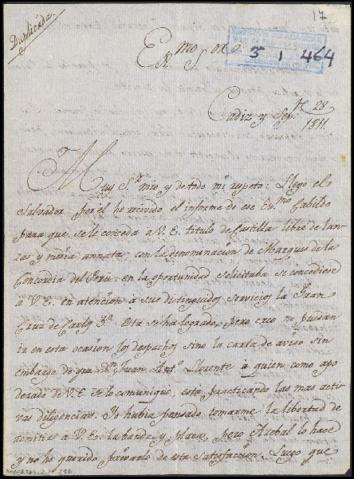 17
Duplicada
Exmo Sor
3 1 464
Cadiz y Sepe 28
1811
Muy Sr mio y de todo mi respeto: Llegó el
Salvador por él he recivido el informe de ese Exmo Cabildo
para que se le conceda a V.E. titulo de Castilla libre de lan-
zas y media annata, con la denominacion de Marques de la
Concordia del Peru: en la oportunidad solicitaba se concediese
a V.E. en atencion a sus distinguidos servicios la Gran
Cruz de Carlos 3º. Esta se ha logrado, pero creo no puedan
ir en esta ocasion los despachos sino la carta de aviso sin
embargo de que Dn Juan Anto. Llorente a quien como apo-
derado de V.E. se lo comuniqué, está practicando las mas acti-
vas diligencias. Yo habia pensado tomarme la libertad de
remitir a V.E. la banda y placa, pero Arobal lo hace
y no he querido privarlo de esta satisfaccion. Luego que